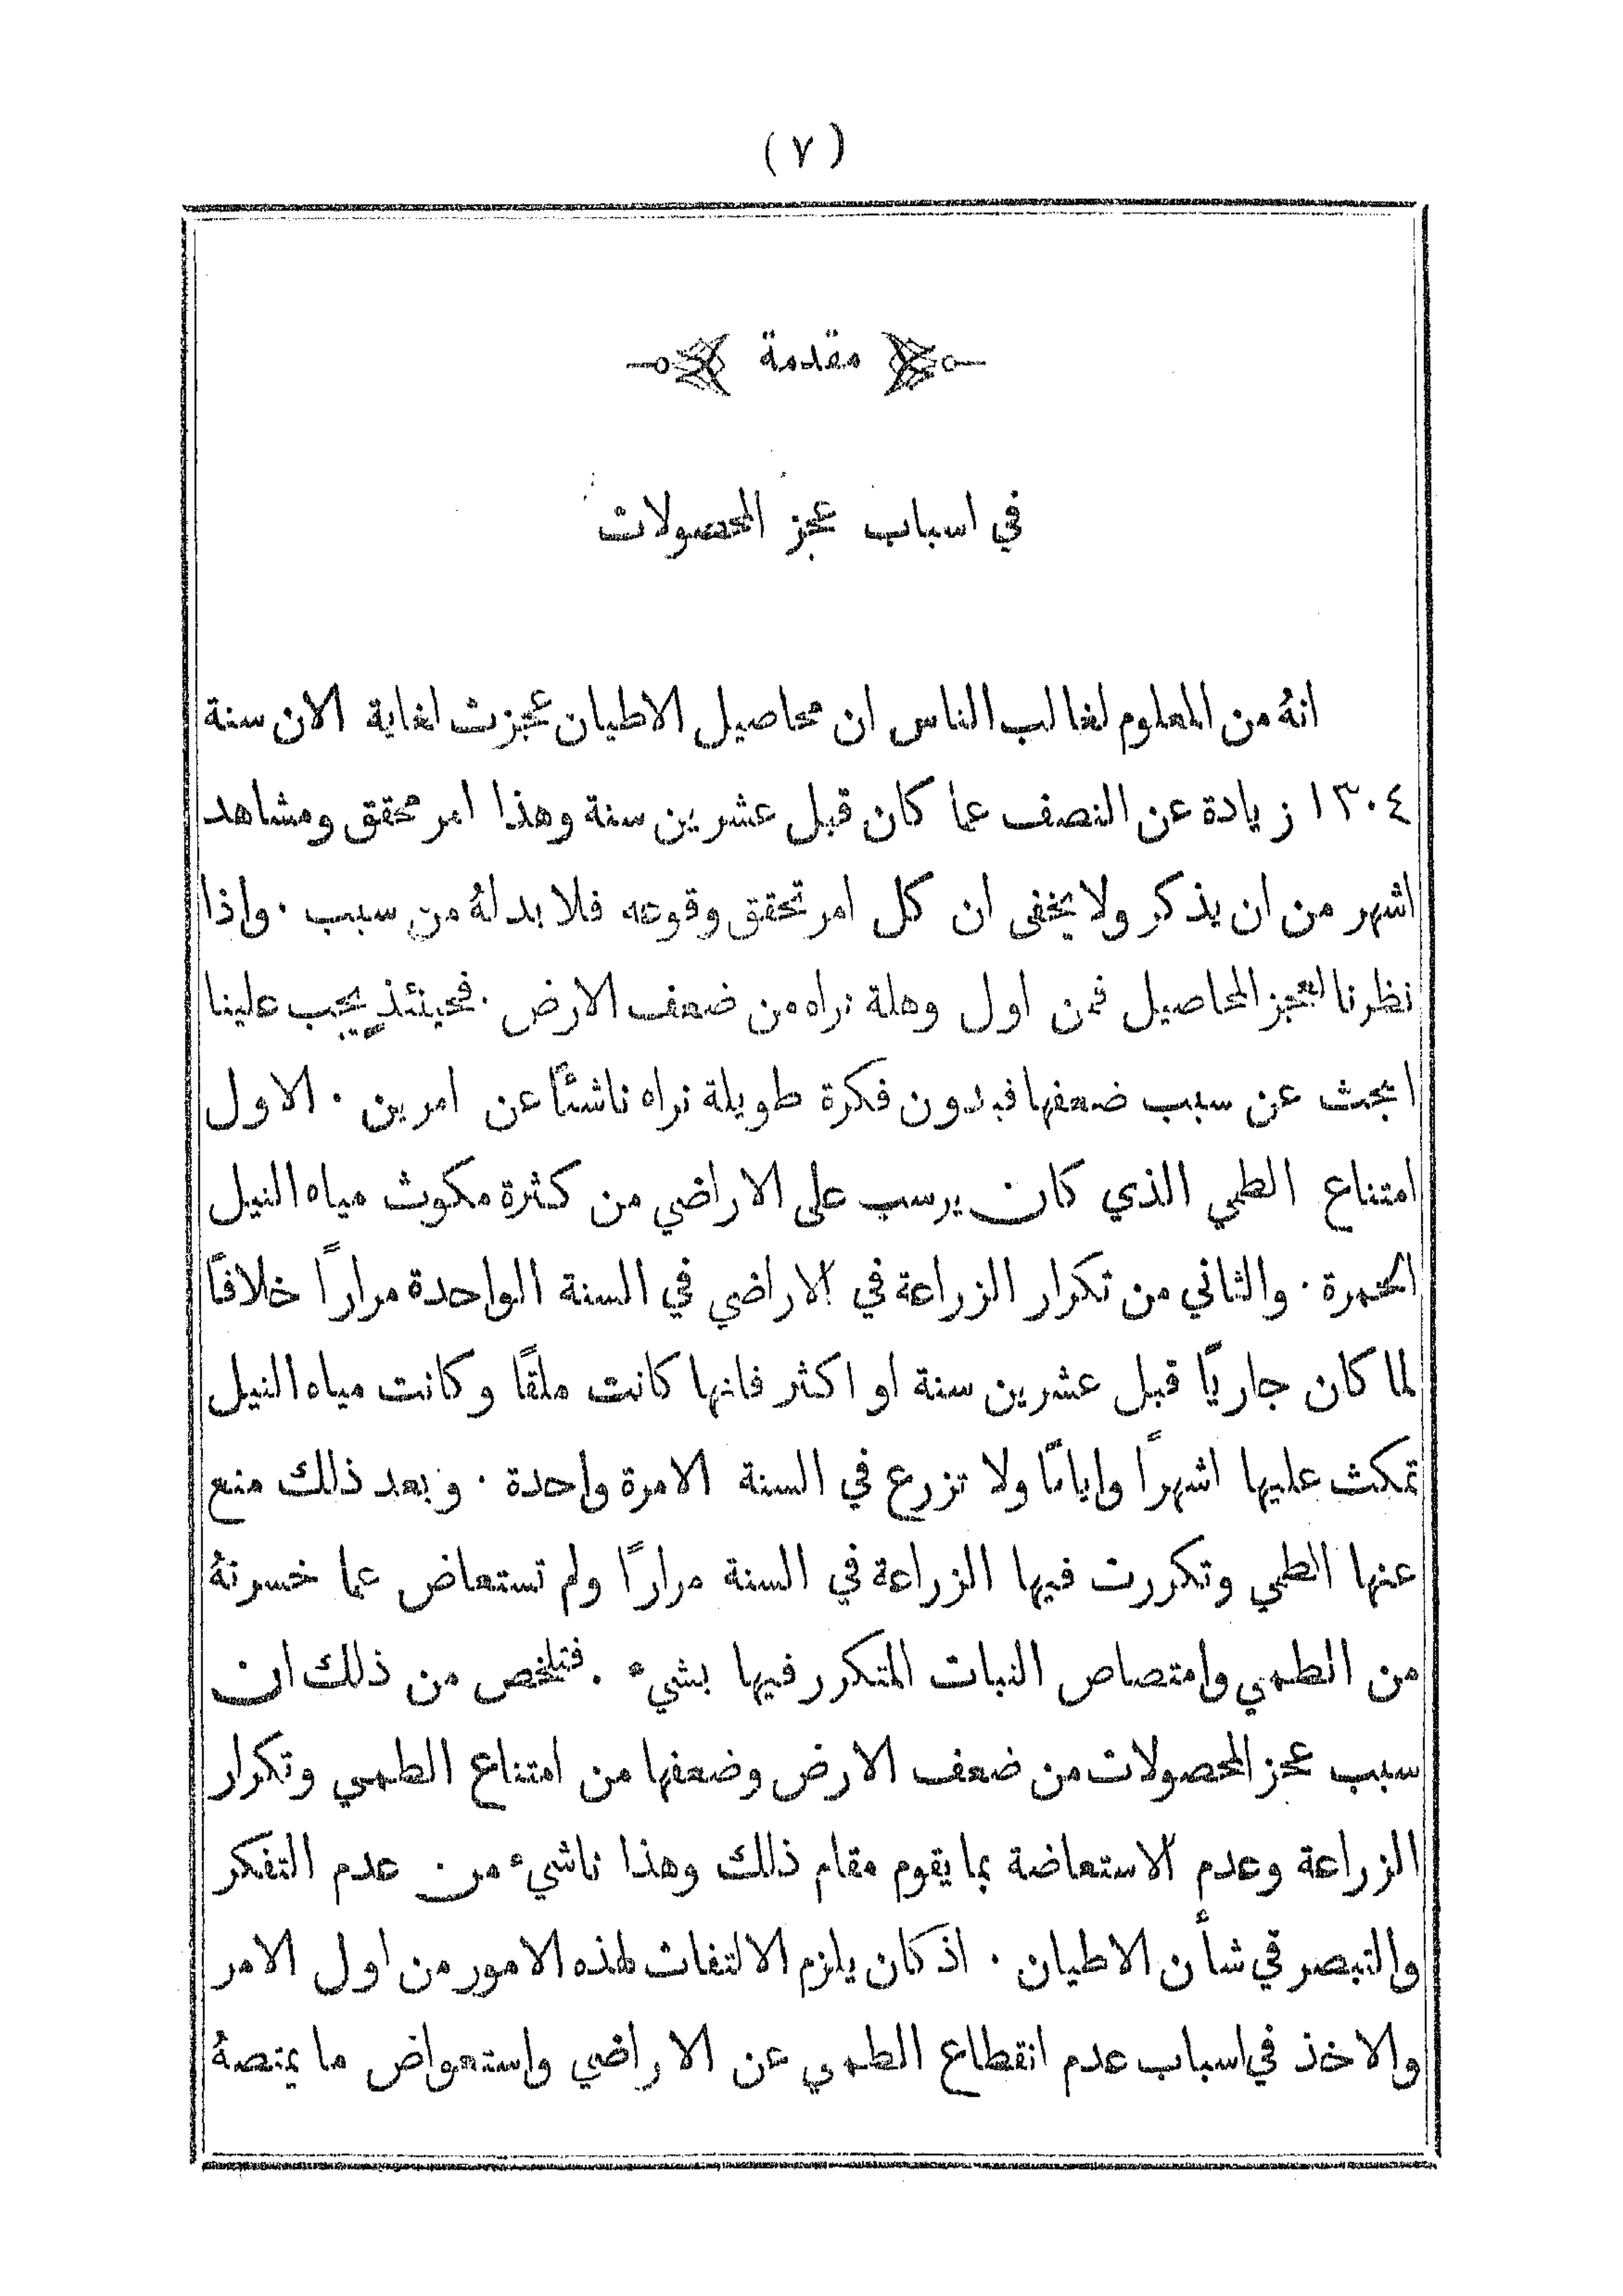 (٧)
مقدمة
في اسباب عجز المحصولات
انهُ من المعلوم لغالب الناس ان محاصيل الاطيان عجزت لغاية الان سنة
١٣٠٤ زيادة عن النصف عما كان قبل عشرين سنة وهذا امر محقق ومشاهد
اشهر من ان يذكر ولا يخفى ان كل امر تحقق وقوعه فلا بد لهُ من سبب . واذا
نظرنا لعجز المحاصيل فمن اول وهلة نراه من ضعف الارض . فحينئذٍ يجب علينا
ابحث عن سبب ضعفها فبدون فكرة طويلة نراه ناشئًا عن امرين . الاول
امتناع الطمي الذي كان يرسب على الاراضي من كثرة مكوث مياه النيل
الحمرة . والثاني من تكرار الزراعة في الاراضي في السنة الواحدة مرارًا خلافًا
لما كان جاريًا قبل عشرين سنة او اكثر فانها كانت ملقًا وكانت مياه النيل
تمكث عليها اشهرًا وايامًا ولا تزرع في السنة الا مرة واحدة . وبعد ذلك منع
عنها الطمي وتكررت فيها الزراعة في السنة مرارًا ولم تستعاض عما خسرتهُ
من الطمي وامتصاص النبات المتكرر فيها بشيء . فتلخص من ذلك ان
سبب عجز المحصولات من ضعف الارض وضعفها من امتناع الطمي وتكرار
الزراعة وعدم الاستعاضة بما يقوم مقام ذلك وهذا ناشيء من عدم التفكر
والتبصر في شأن الاطيان . اذ كان يلزم الالتفات لهذه الامور من اول الامر
والاخذ في اسباب عدم انقطاع الطمي عن الاراضي واستعواض ما يمتصهُ